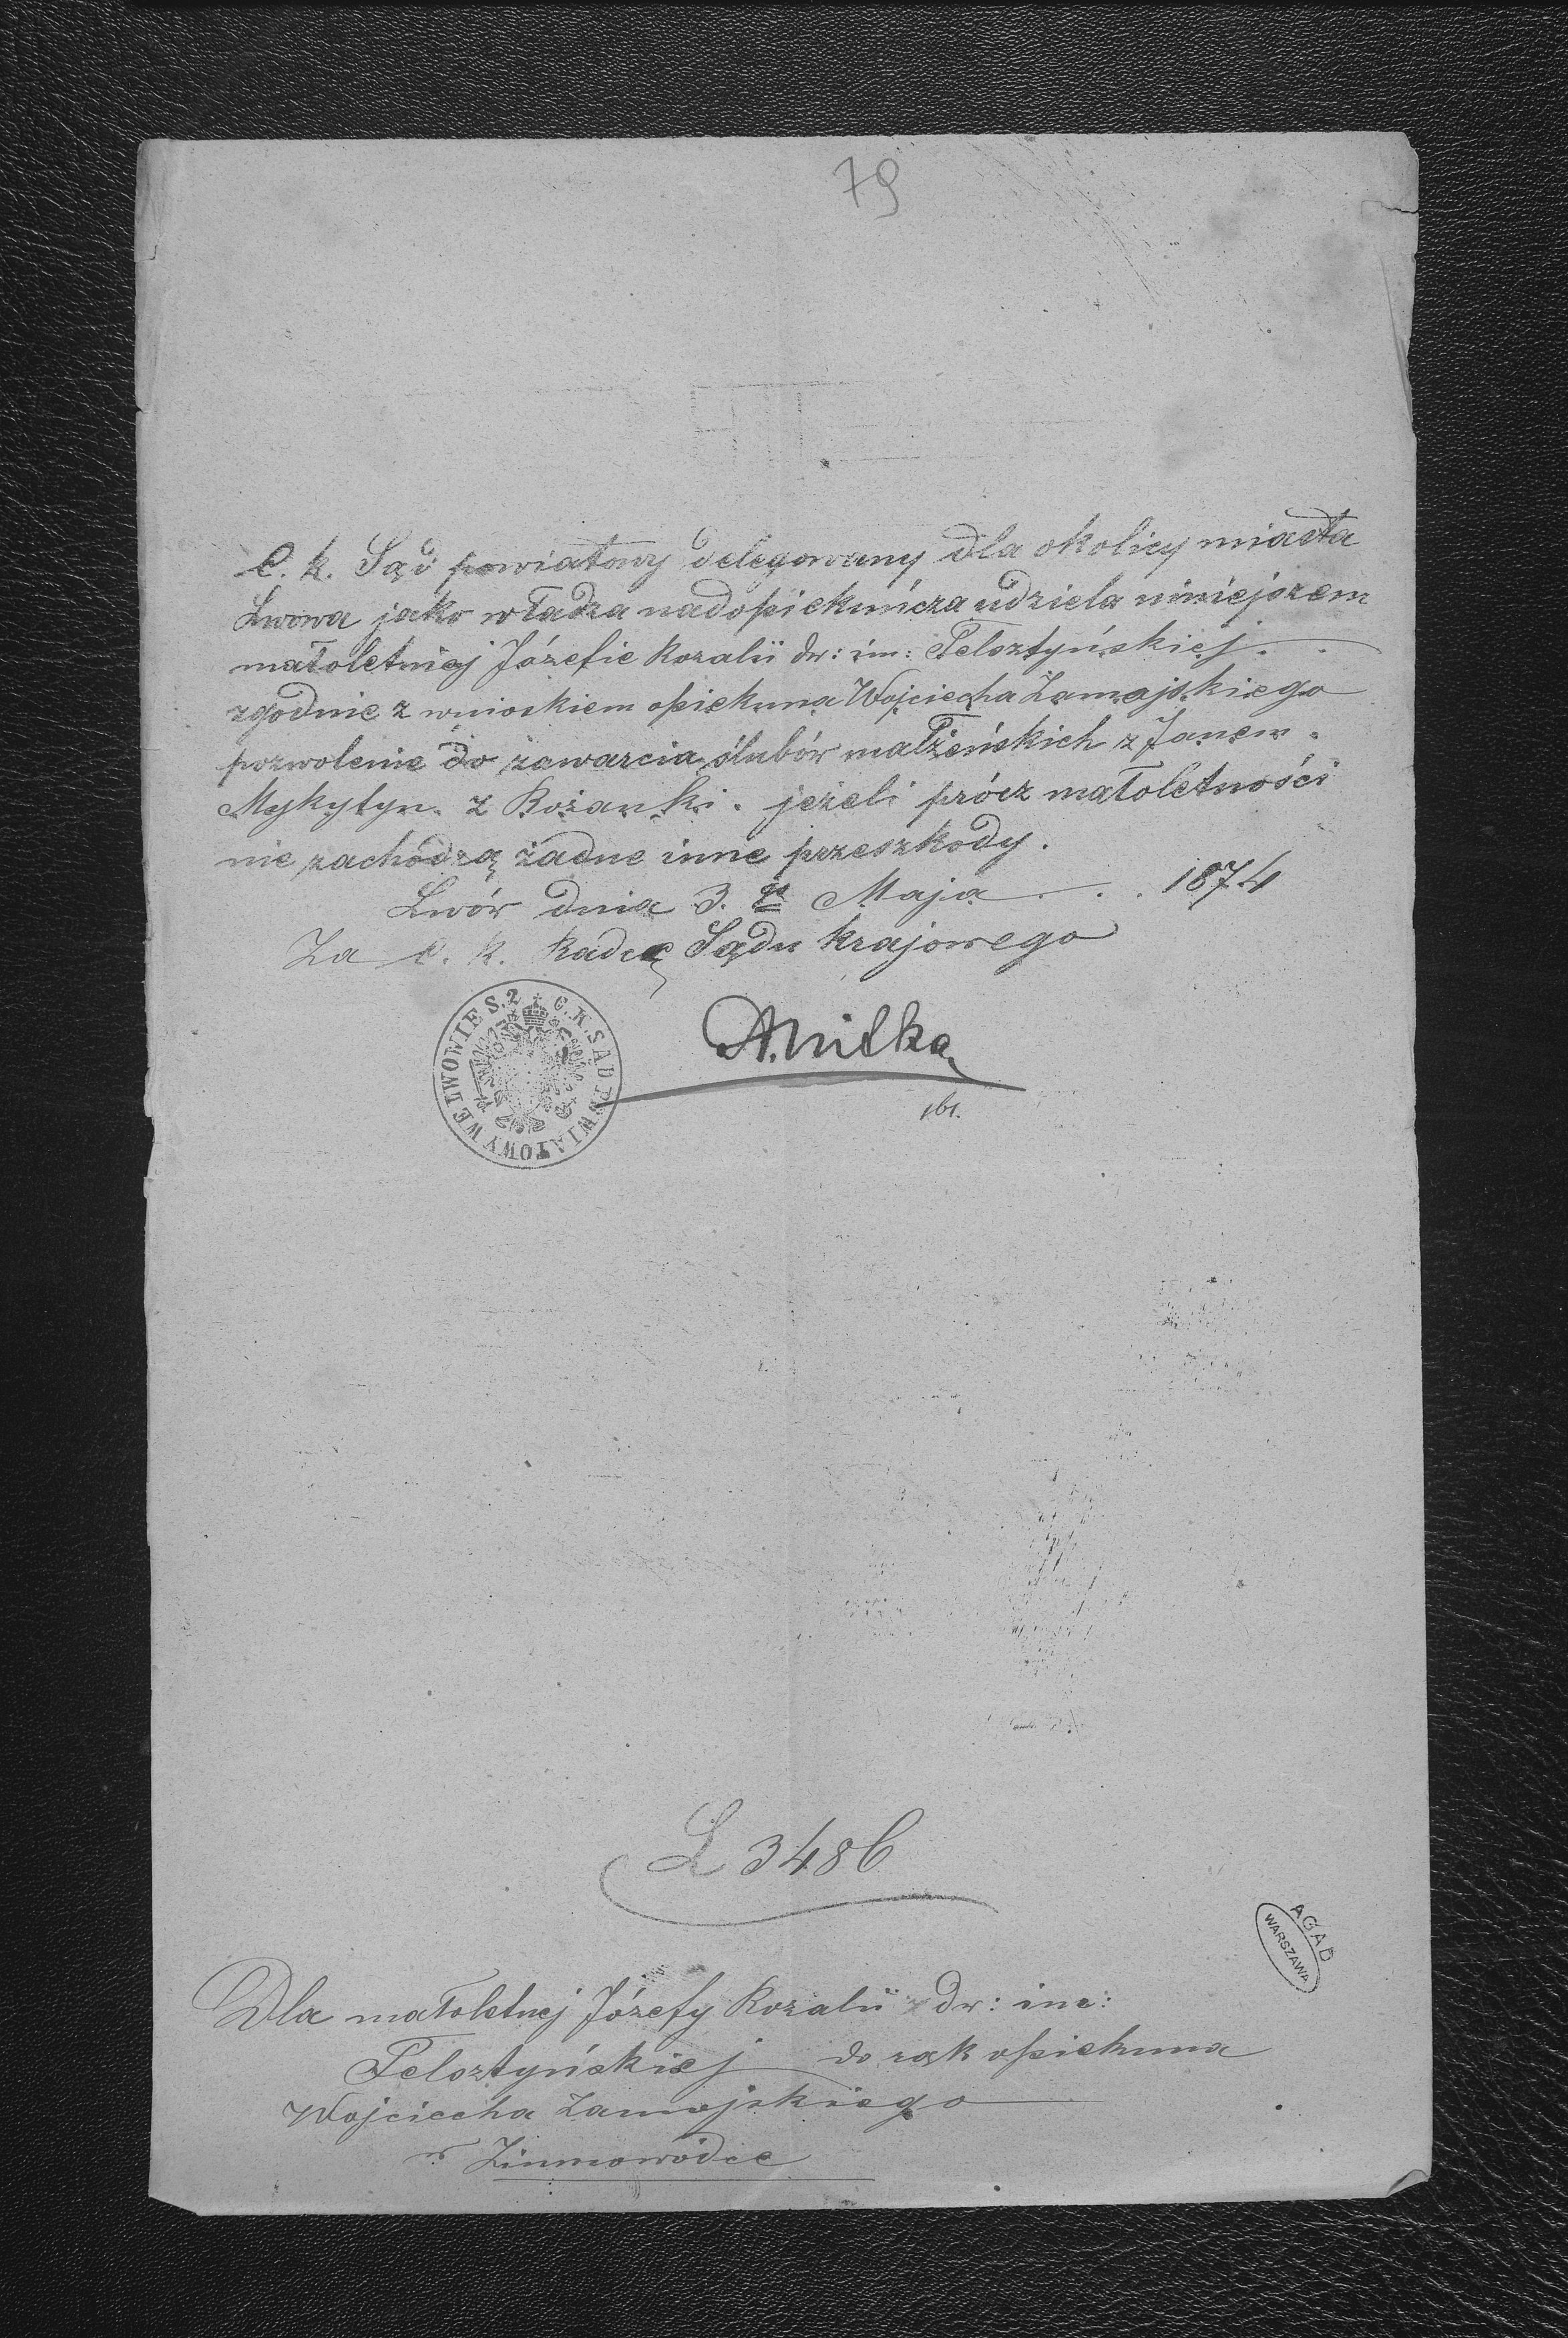 79
C. k. Sąd powiatowy delegowany dla okolicy miasta
Lwowa jako władza nadopiekuńcza udziela niniejszem
małoletniej Józefie Rozalii dw: im: Felsztyńskiej
zgodnie z wnioskiem opiekuna Wojciecha Zamojskiego
pozwolenie do zawarcia ślubów małżeńskich z Janem
Mykytyn z Rożanki. jeżeli prócz małoletności
nie zachodzą żadne inne przeszkody.
Lwów dnia 3. go Maja 1874
Za c. k. Radcę Sądu krajowego
C. K. SĄD POWIATOWY WE LWOWIE S. 2
A. Nitka
L 3486
AGAD
WARSZAWA
Dla małoletnej Józefy Rozalii dw: im:
Felsztyńskiej do rąk opiekuna
Wojciecha Zamojskiego
w Zimnowódce